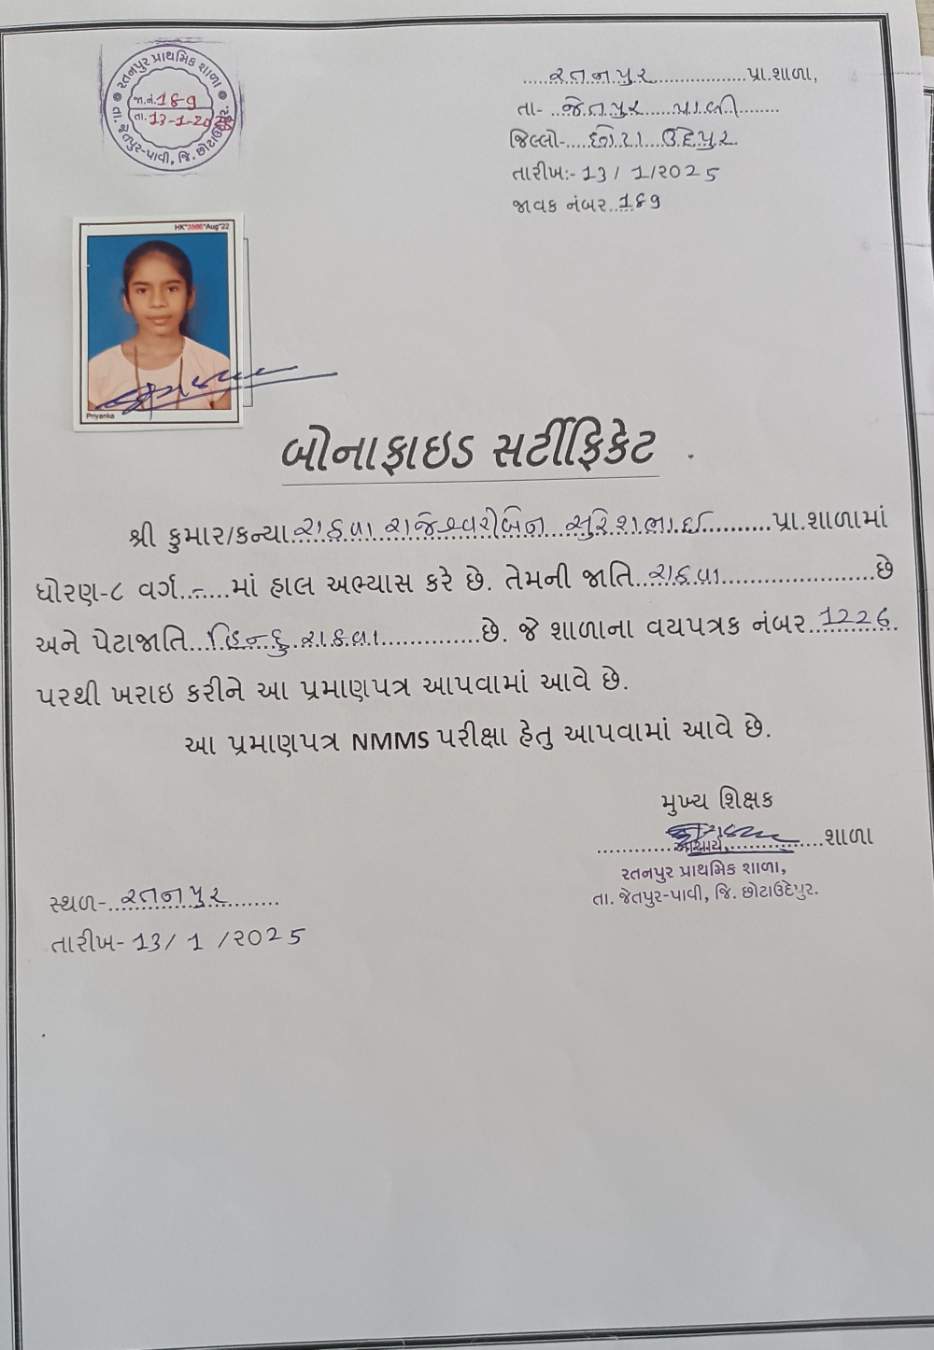 રતનપુર પ્રાથમિક શાળા
જા.નં. 189
તા. 13-1-20
તા. જેતપુર-પાવી, જિ. છોટાઉદેપુર.
રતનપુર પ્રા.શાળા,
તા- જેતપુર પાવી
જિલ્લો- છોટા ઉદેપુર
તારીખ:- 13/1/2025
જાવક નંબર 189
HK"2006"Aug"22
Priyanka
બોનાફાઇડ સર્ટીફિકેટ
શ્રી કુમાર/કન્યા રાઠવા રાજેશ્વરીબેન સુરેશભાઈ પ્રા.શાળામાં
ધોરણ-૮ વર્ગ..-....માં હાલ અભ્યાસ કરે છે. તેમની જાતિ રાઠવા છે
અને પેટાજાતિ હિન્દુ રાઠવા છે. જે શાળાના વયપત્રક નંબર 1226
પરથી ખરાઇ કરીને આ પ્રમાણપત્ર આપવામાં આવે છે.
આ પ્રમાણપત્ર NMMS પરીક્ષા હેતુ આપવામાં આવે છે.
મુખ્ય શિક્ષક
શાળા
આચાર્ય,
રતનપુર પ્રાથમિક શાળા,
તા. જેતપુર-પાવી, જિ. છોટાઉદેપુર.
સ્થળ- રતનપુર
તારીખ- 13/1/2025